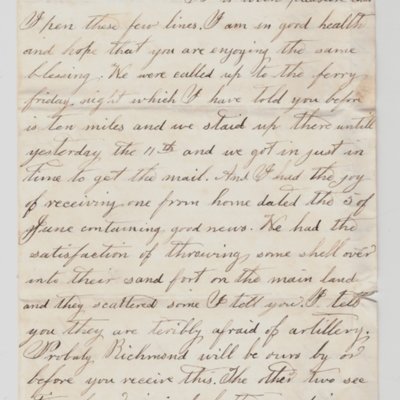 It is with pleasure that
I pen these few lines. I am in good health
and hope that you are enjoying the same
blessing. We were called up to the ferry
friday night which I have told you before
is ten miles and we staid up there untill
yesterday the 11th and we got in just in
time to get the mail. And I had the joy
of receiving one from home dated the 5 of
June containing good news. We had the
satisfaction of throwing some shell over
into their sand fort on the main land
and they scattered some I tell you. I tell
you they are teribly afraid of artillery.
Probaly Richmond will be ours by or
before you receive this. The other two sec